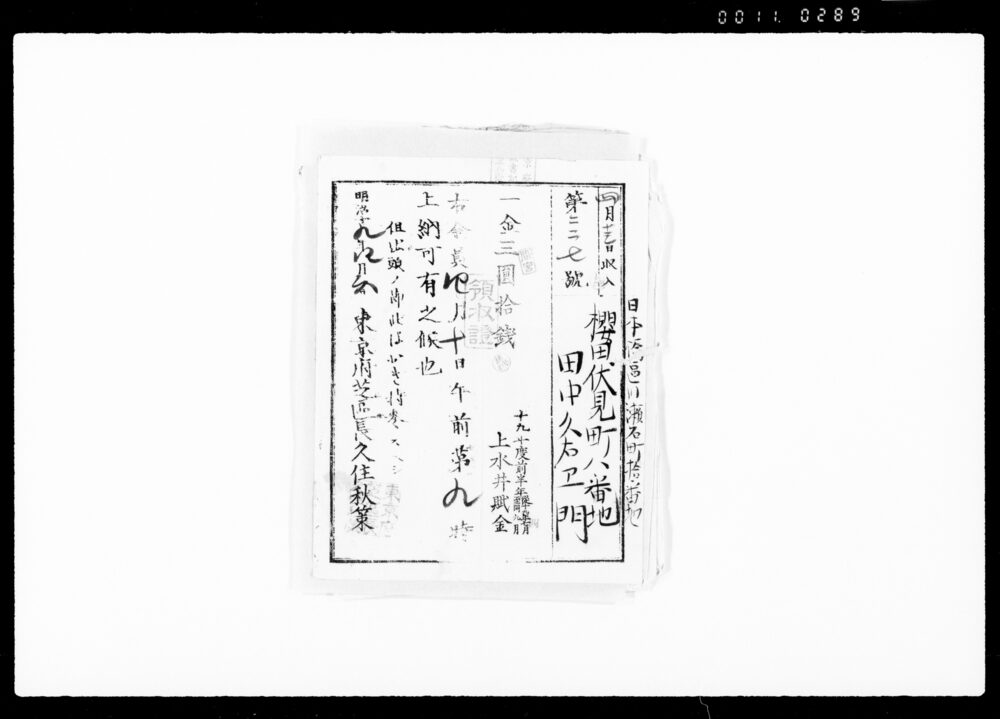 0011. 0289
日本橋區川瀬石町拾番地
四月十三日收入
櫻田伏見町八番地
第二二七號
田中久右卫門
一金三圓拾錢
十九年度前半年
上水井賦金
領收證
右金員四月十日午前第九時
上納可有之候也
但出頭ノ節此はがき持参スヘシ
明治十九年四月 東京府芝區長久住秋策